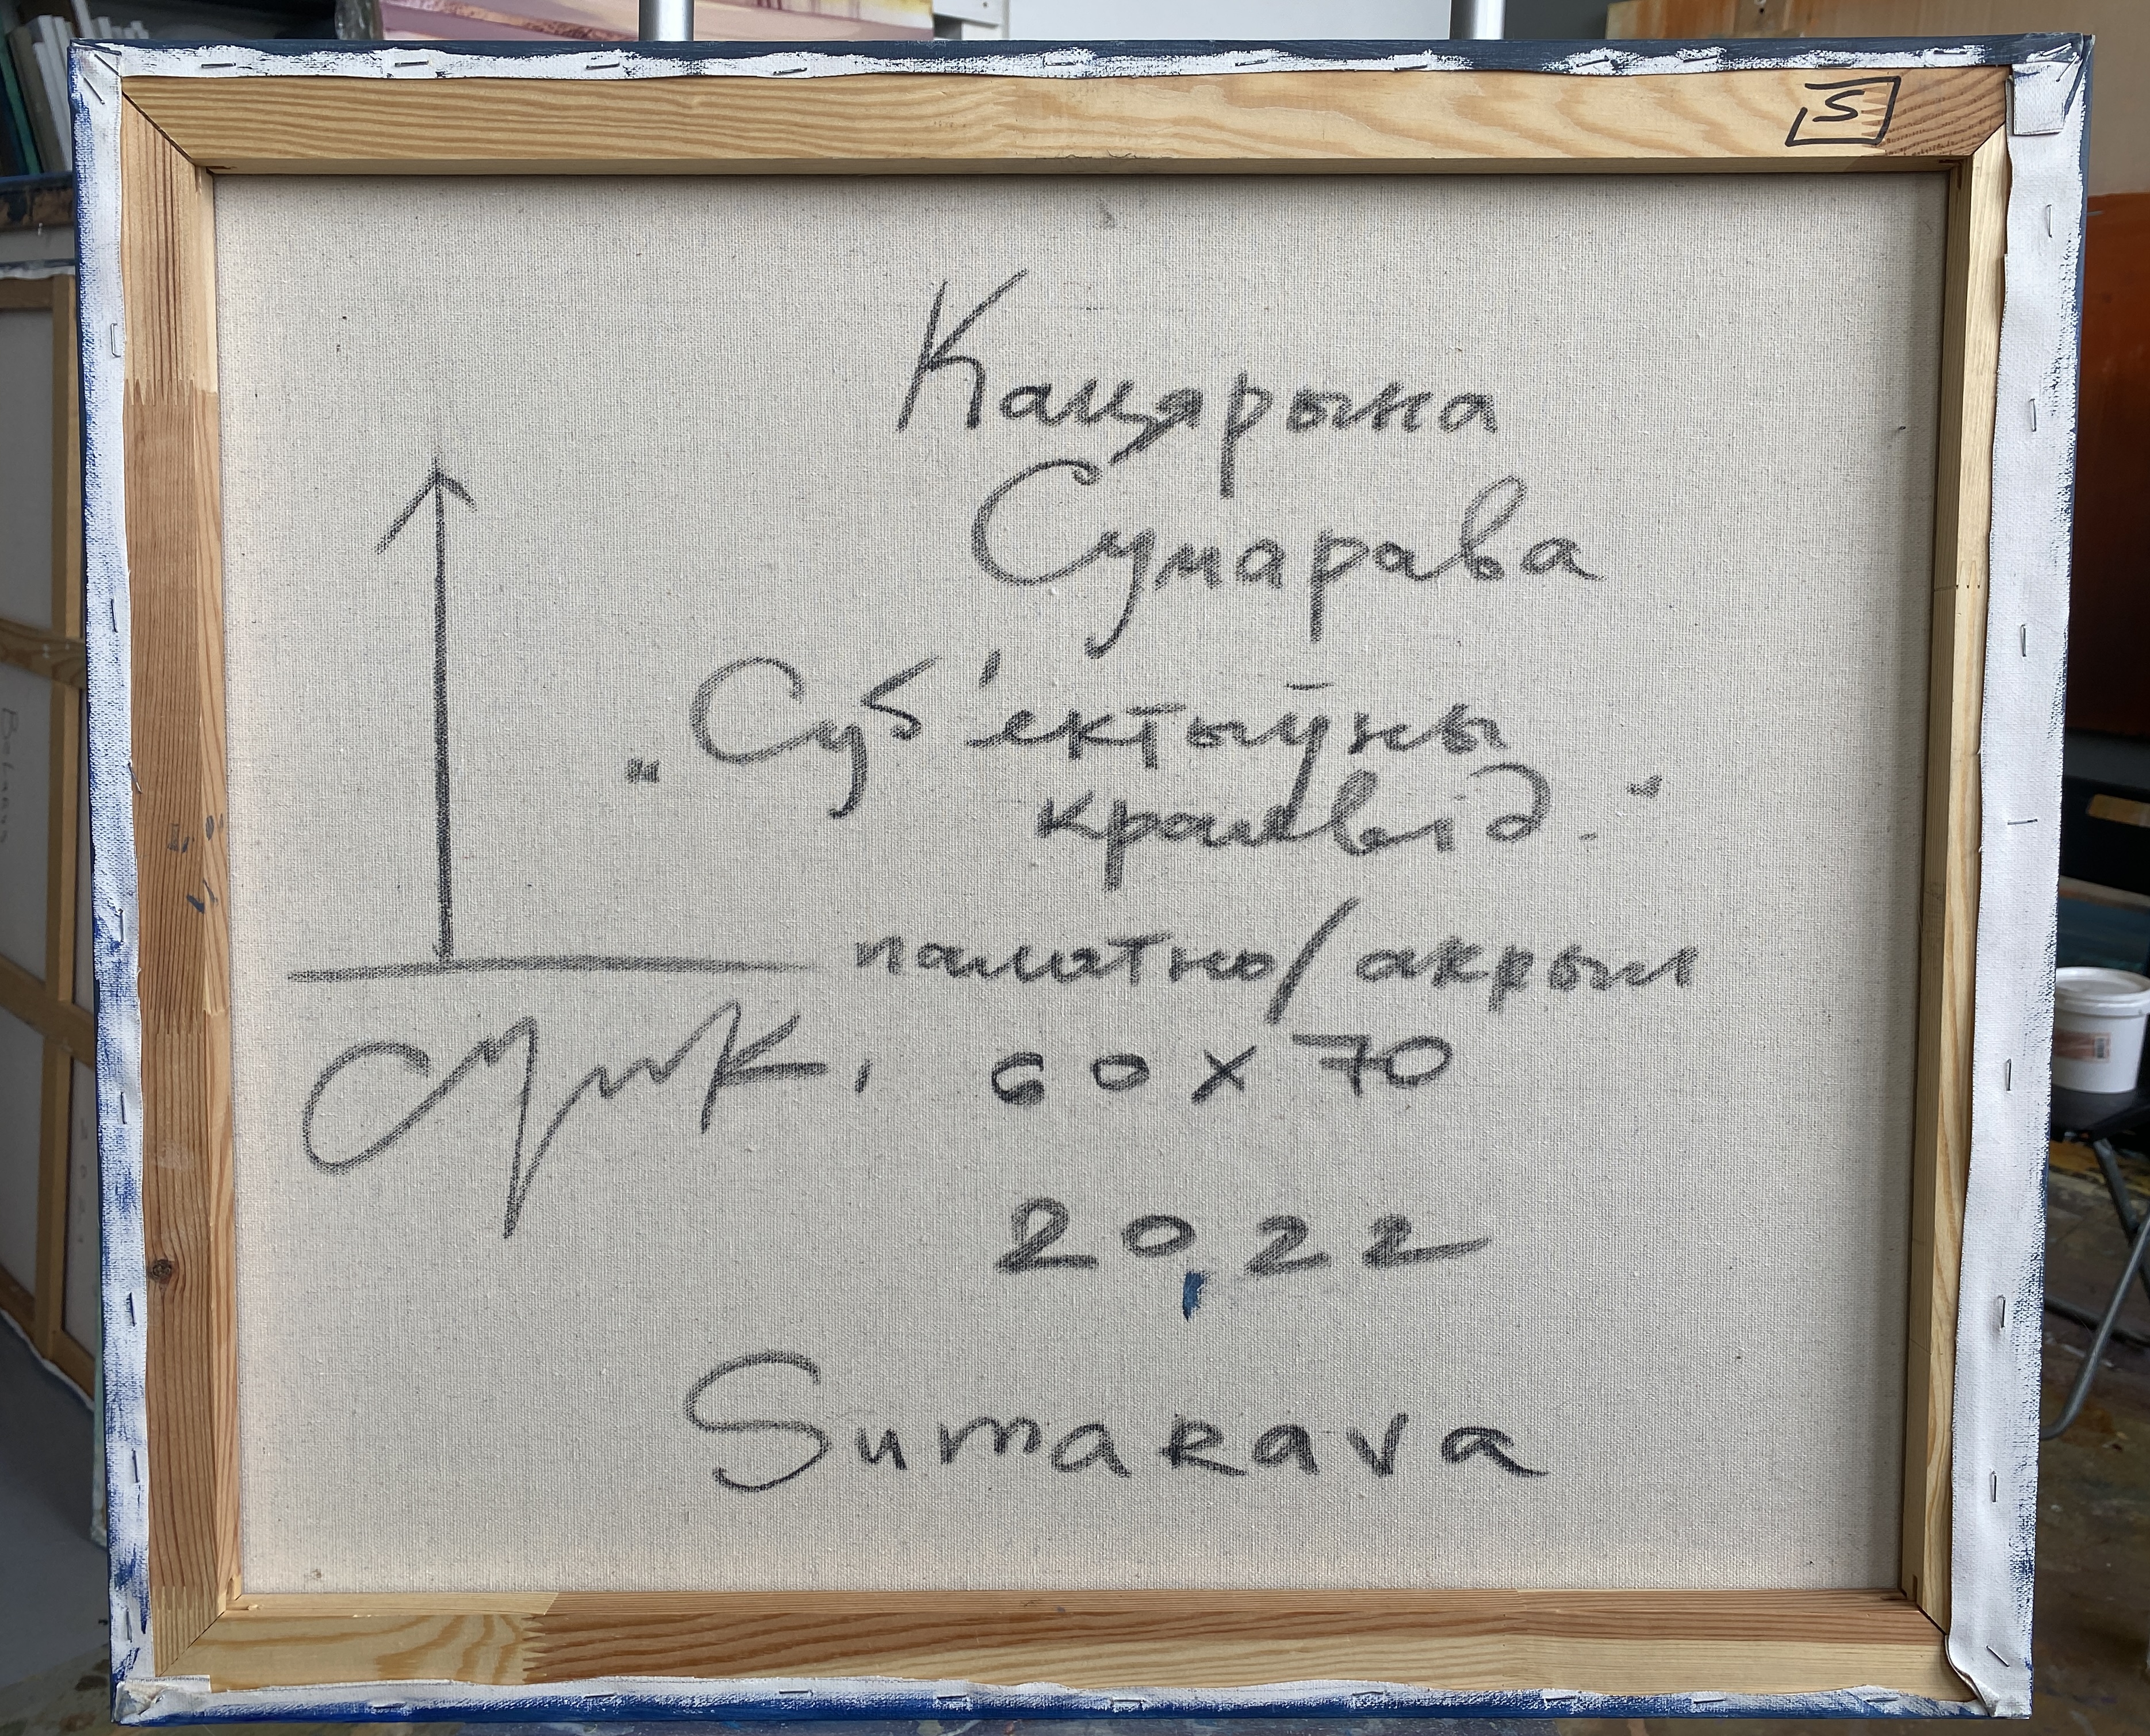 S
Кацярына
Сумарава
„Суб'ектыўны
краявід."
палатно/акрыл
60 x 70
2022
Sumarava